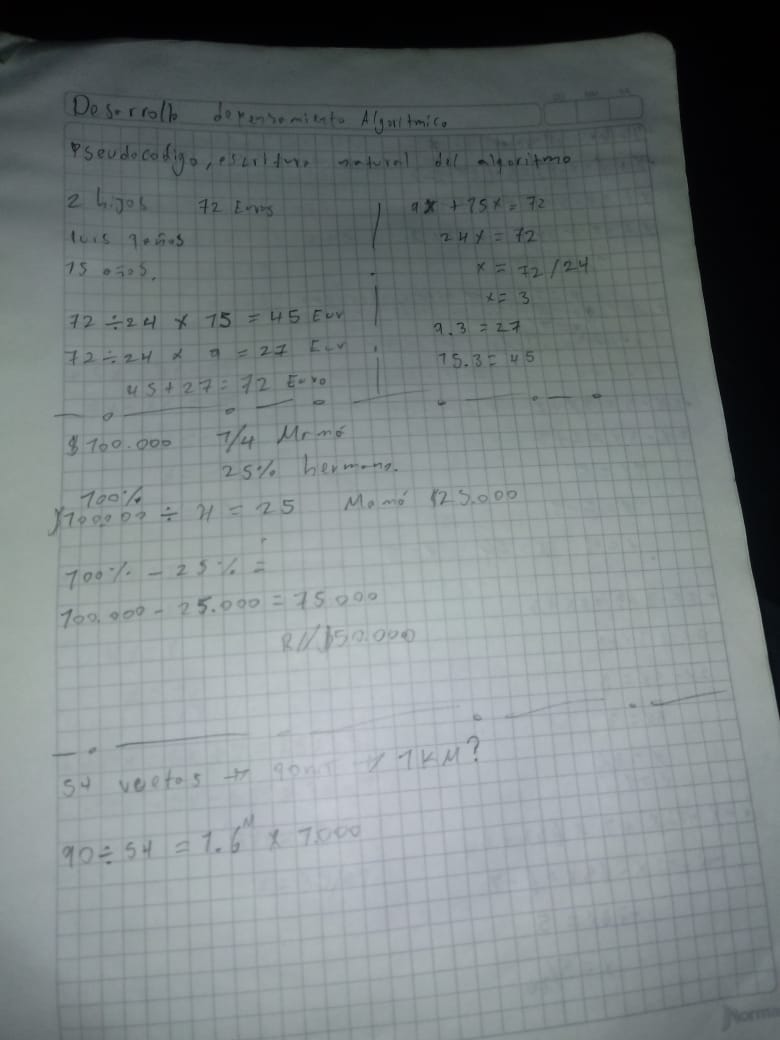 Desarrollo de pensamiento Algoritmico
Pseudocodigo, escritura natural del algoritmo
2 hijos 72 Euros
luis 9 años
15 años.
72 ÷ 24 x 15 = 45 Eur
72 ÷ 24 x 9 = 27 Eur
45 + 27 = 72 Euro
9x + 15x = 72
24x = 72
x = 72/24
x = 3
9.3 = 27
15.3 = 45
$100.000 1/4 Mamá
25% hermano.
100%
$100000 ÷ 4 = 25 Mamá $25.000
100% - 25% =
100.000 - 25.000 = 75000
R// $50.000
54 vueltas → 90mt → 1KM?
90 ÷ 54 = 1.6 M x 1.000
Norma